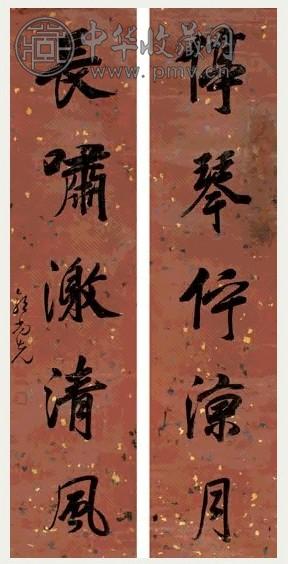 中华收藏网
www.pmv.cn
彈琴佇涼月
長嘯激清風
郭尚先